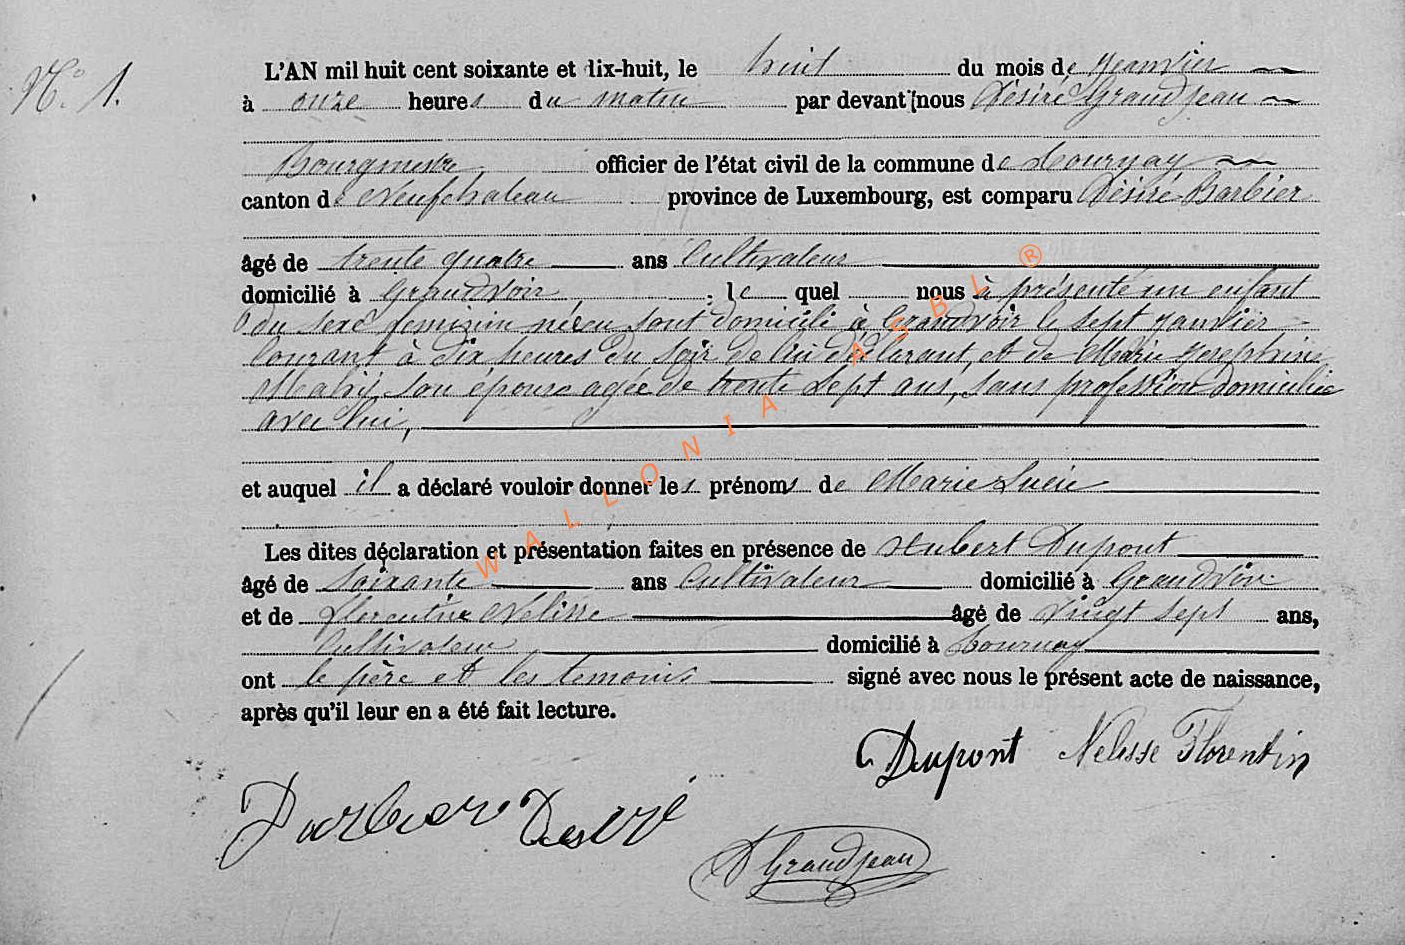 N° 1.
L'AN mil huit cent soixante et dix-huit, le huit du mois de Janvier
à onze heures du matin par devant nous Désiré Grandjean
Bourgmestre officier de l'état civil de la commune de Tournay
canton de Neufchateau province de Luxembourg, est comparu Désiré Barbier
âgé de trente quatre ans Cultivateur
domicilié à Grandvoir, lequel nous à présenté un enfant
du sexe feminin né en sont domicili à Grandvoir le sept Janvier
Courant à dix heures du soir de lui déclarant, et de Marie Josephine
son épouse agée de trente sept ans, sans profession domiciliée
avec lui,
et auquel il a déclaré vouloir donner les prénoms de Marie Lucie
Les dites déclaration et présentation faites en présence de Hubert Dupont
âgé de soixante ans Cultivateur domicilié à Grandvoir
et de Florentin Nelisse âgé de vingt sept ans,
Cultivateur domicilié à Tournay
ont le père et les temoins signé avec nous le présent acte de naissance,
après qu'il leur en a été fait lecture.
Dupont Nelisse Florentin
Barbier Desiré
D Grandjean
WALLONIA ASBL ®